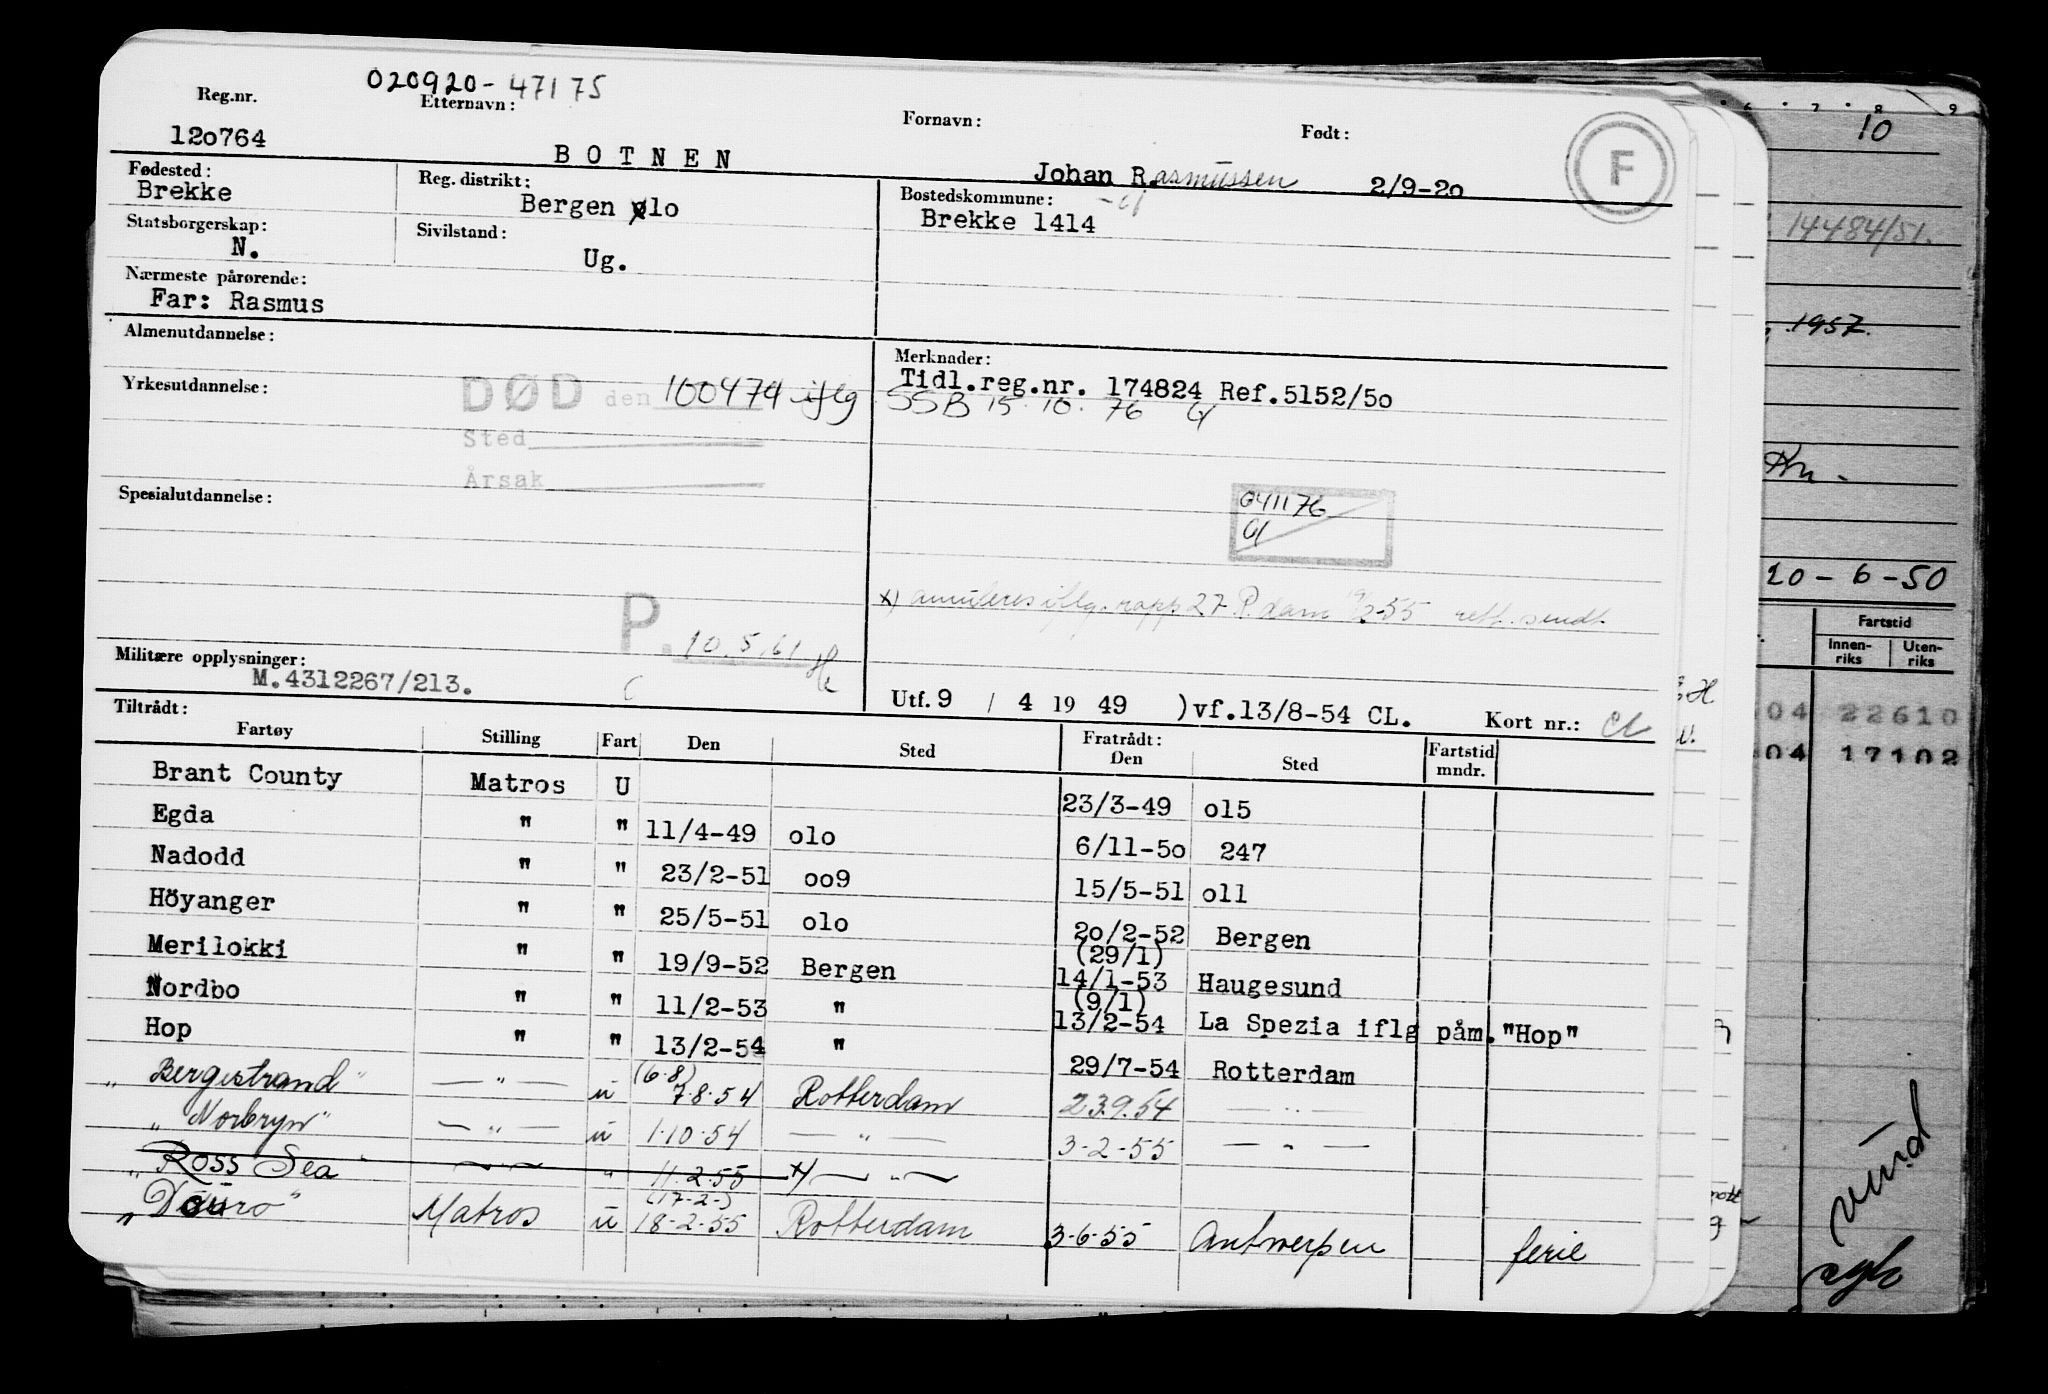 020920-47175
Reg.nr. Etternavn: Fornavn: Født:
12o764 BOTNEN Johan Rasmussen 2/9-2o F
Fødested: Reg. distrikt: Bostedskommune:
Brekke Bergen olo Brekke 1414
Statsborgerskap: Sivilstand:
N. Ug.
Nærmeste pårørende:
Far: Rasmus
Almenutdannelse: Merknader:
Tidl.reg.nr. 174824 Ref.5152/5o
Yrkesutdannelse: DØD den 100474 iflg SSB 15.10.76
Sted
Årsak
Spesialutdannelse: 041176
x) annuleres iflg. rapp 27 R.dam 19/2-55 rett. sendt.
P. 10.5.61
Militære opplysninger:
M.4312267/213.
Utf. 9 / 4 19 49 )vf.13/8-54 CL. Kort nr.: CL
Tiltrådt: Fratrådt:
Fartøy Stilling Fart Den Sted Den Sted Fartstid mndr.
Brant County Matros U 23/3-49 ol5
Egda " " 11/4-49 olo 6/11-5o 247
Nadodd " " 23/2-51 oo9 15/5-51 oll
Höyanger " " 25/5-51 olo 2o/2-52 Bergen
(29/1)
Merilokki " " 19/9-52 Bergen 14/1-53 Haugesund
(9/1)
Nordbo " " 11/2-53 " 13/2-54 La Spezia iflg påm. "Hop"
Hop " " 13/2-54 " 29/7-54 Rotterdam
(6.8)
"Bergestrand" — " — u 7.8.54 Rotterdam 23.9.54 — " —
"Norbryn" — " — u 1.10.54 — " — 3-2-55 — " —
"Ross Sea" — " — " 11.2.55 x) — " —
(17-2-)
"Douro" Matros u 18-2-55 Rotterdam 3-6-55 Antwerpen ferie
6 7 8 9
10
14484/51.
1957.
20-6-50
Fartstid
Innen-riks Uten-riks
04 22610
04 17102